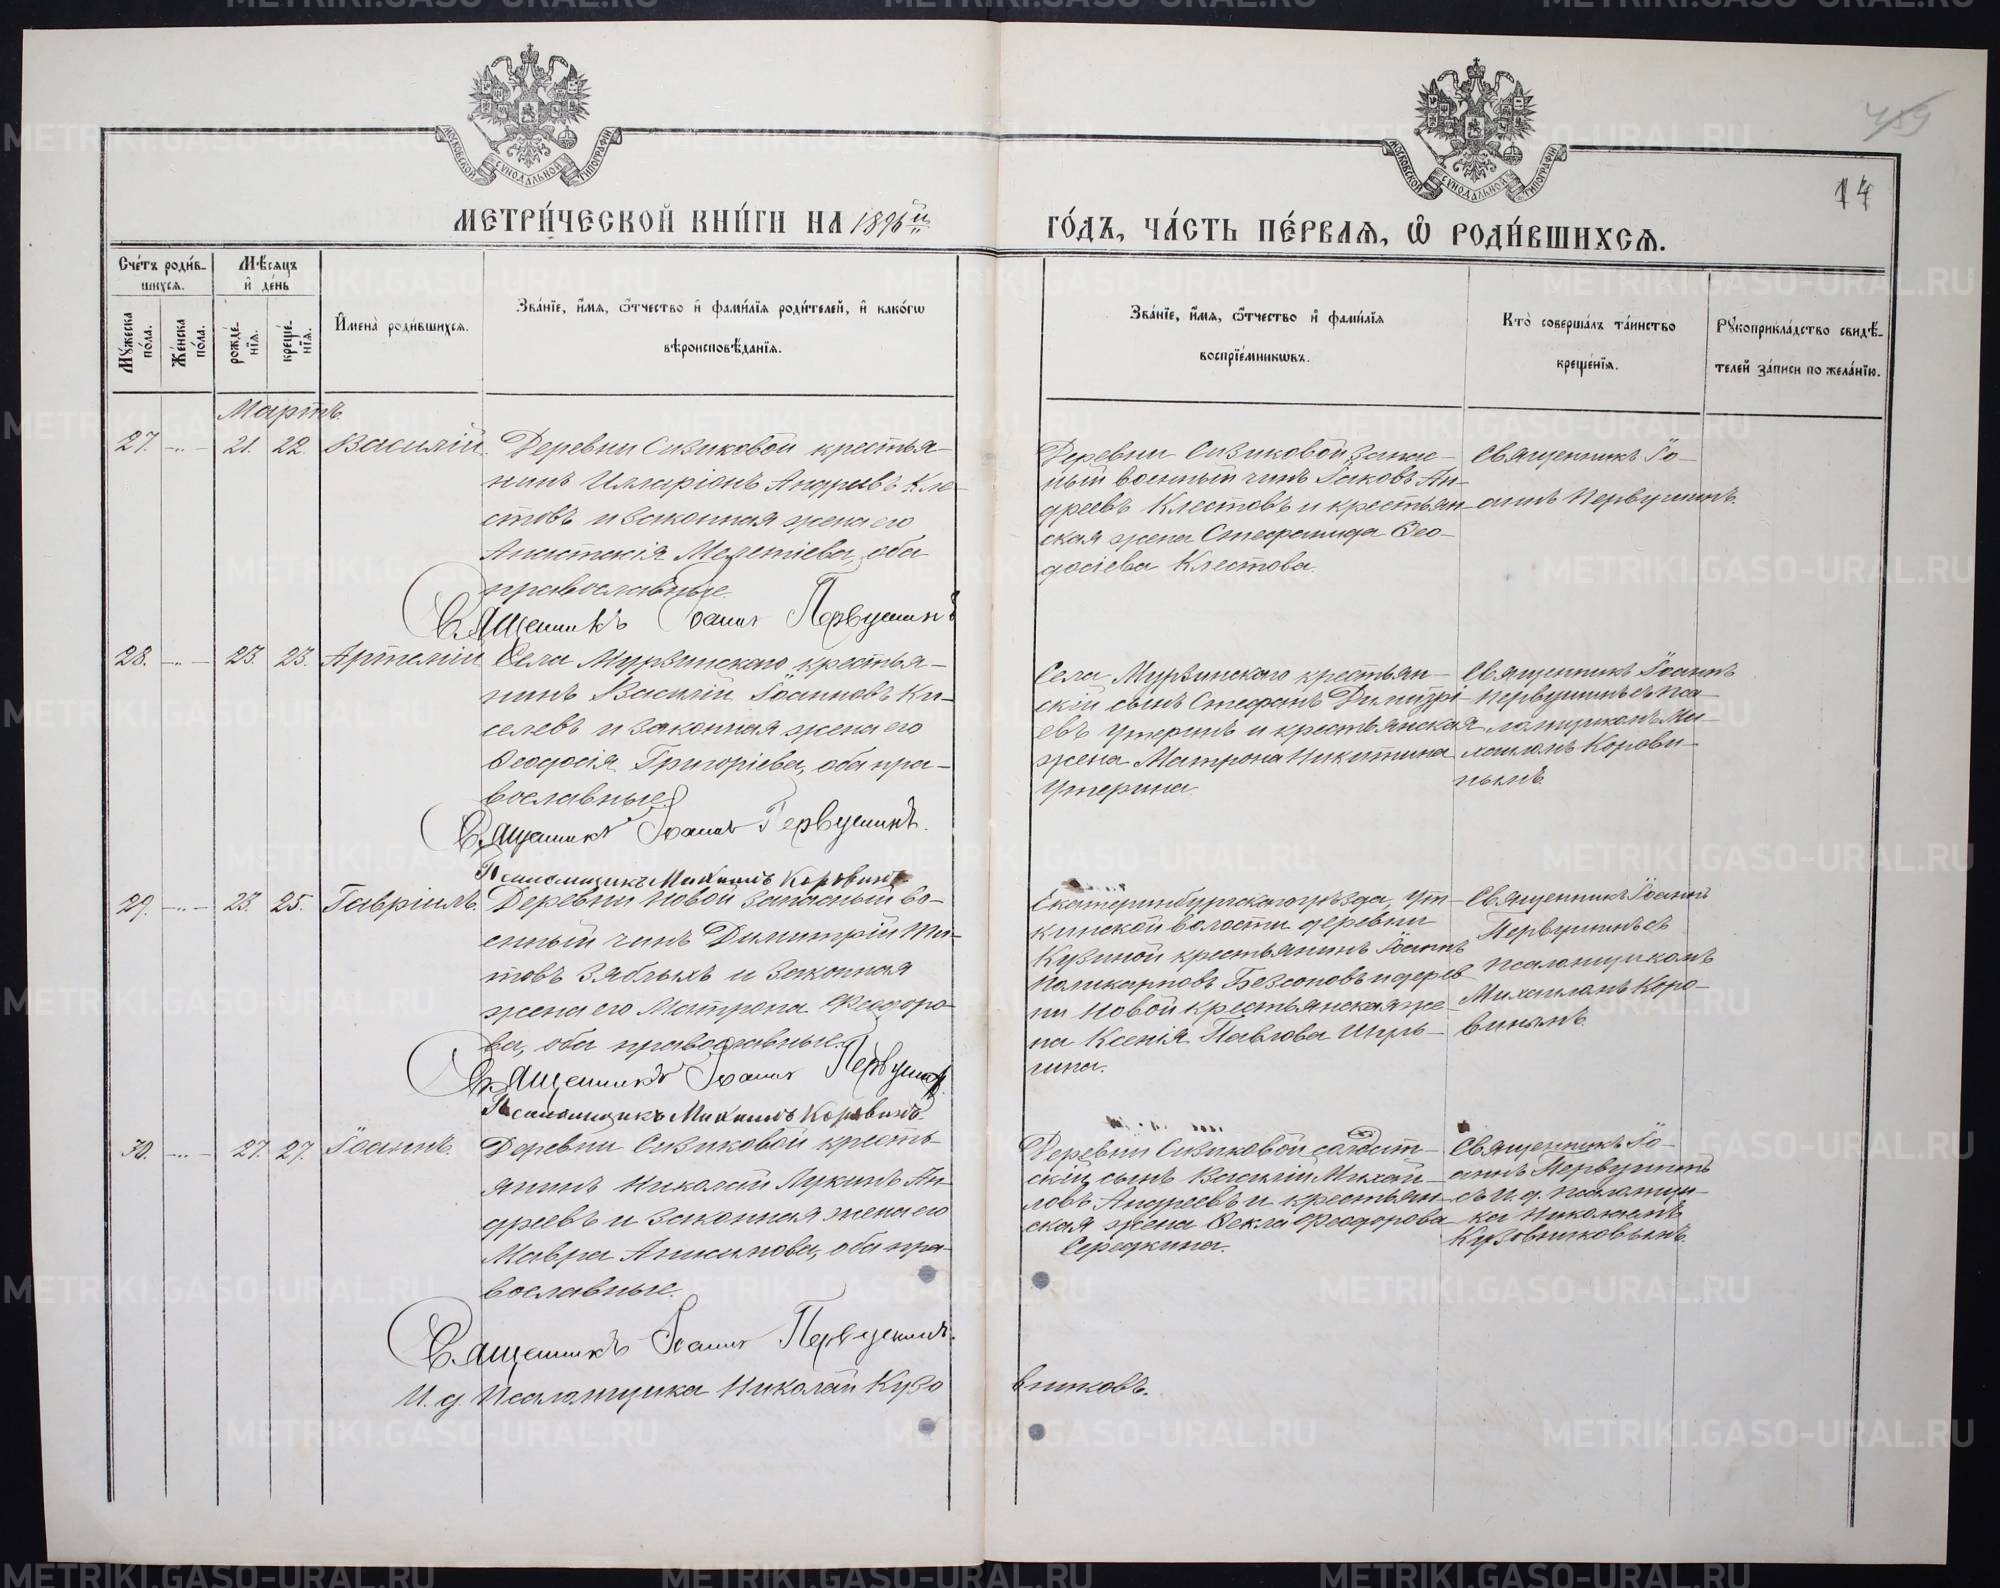 МЕТРИ́ЧЕСКОЙ КНИ́ГИ НА 1896й
ГО́ДЪ, ЧА́СТЬ ПЕ́РВАѦ, Ѡ҆ РОДИ́ВШИХСѦ.
14
Сче́тъ роди́в-
шихсѧ.
Мѣ́сѧцъ
и҆ де́нь
Мꙋ́жеска по́ла.
Же́нска по́ла.
рожде́нїѧ.
креще́нїѧ.
И҆мена̀ роди́вшихсѧ.
Зва́нїе, и҆́мѧ, ѻ҆́тчество и҆ фами́лїѧ роди́телей, и҆ како́гѡ
вѣроисповѣ́данїѧ.
Зва́нїе, и҆́мѧ, ѻ҆́тчество и҆ фами́лїѧ
воспрїе́мникѡвъ.
Кто̀ соверша́лъ та́инство
креще́нїѧ.
Рꙋкоприкла́дство свидѣ́-
телей за́писи по жела́нїю.
Мартъ.
27. -"- 21. 22. Василій.
Деревни Сизиковой крестья-
нинъ Илларіонъ Андреевъ Кле-
стовъ и законная жена его
Анастасія Мелетіева, оба
православные.
Священникъ Іоаннъ Первушинъ
Деревни Сизиковой запас-
ный военный чинъ Іаковъ Ан-
дреевъ Клестовъ и крестьян-
ская жена Стефанида Ѳео-
досіева Клестова.
Священникъ Іо-
аннъ Первушинъ.
28. -"- 23. 23. Артемій
Села Мурзинскаго крестья-
нинъ Василій Іоанновъ Ки-
селевъ и законная жена его
Ѳеодосія Григоріева, оба пра-
вославные
Священникъ Іоаннъ Первушинъ.
Псаломщикъ Михаилъ Коровинъ.
Села Мурзинскаго крестьян-
скій сынъ Стефанъ Димитрі-
евъ Утеринъ и крестьянская
жена Матрона Никитина
Утерина.
Священникъ Іоаннъ
Первушинъ съ пса-
ломщикомъ Ми-
хаиломъ Корови-
нымъ.
29. -"- 23. 25. Гавріилъ.
Деревни Новой запасный во-
енный чинъ Димитрій Ти-
товъ Зяблыхъ и законная
жена его Матрона Ѳеодоро-
ва, оба православные.
Священникъ Іоаннъ Первушинъ.
Псаломщикъ Михаилъ Коровинъ.
Екатеринбургскаго уѣзда, Ут-
кинской волости деревни
Кузиной крестьянинъ Іоаннъ
Поликарповъ Безсоновъ и дерев
ни Новой крестьянская же-
на Ксенія Павлова
Священникъ Іоаннъ
Первушинъ съ
псаломщикомъ
Михаиломъ Коро-
винымъ.
30. -"- 27. 27. Іоаннъ.
Деревни Сизиковой кресть-
янинъ Николай Лукинъ Ан-
дреевъ и законная жена его
Мавра Анисимова, оба пра-
вославные.
Священникъ Іоаннъ Первушинъ.
И. д. Псаломщика Николай Кузо
вниковъ.
Деревни Сизиковой солдат-
скій сынъ Василій Михай-
ловъ Андреевъ и крестьян-
ская жена Ѳекла Ѳеодорова
Середкина.
Священникъ Іо-
аннъ Первушинъ
съ И. д. псаломщи-
ка Николаемъ
Кузовниковымъ.